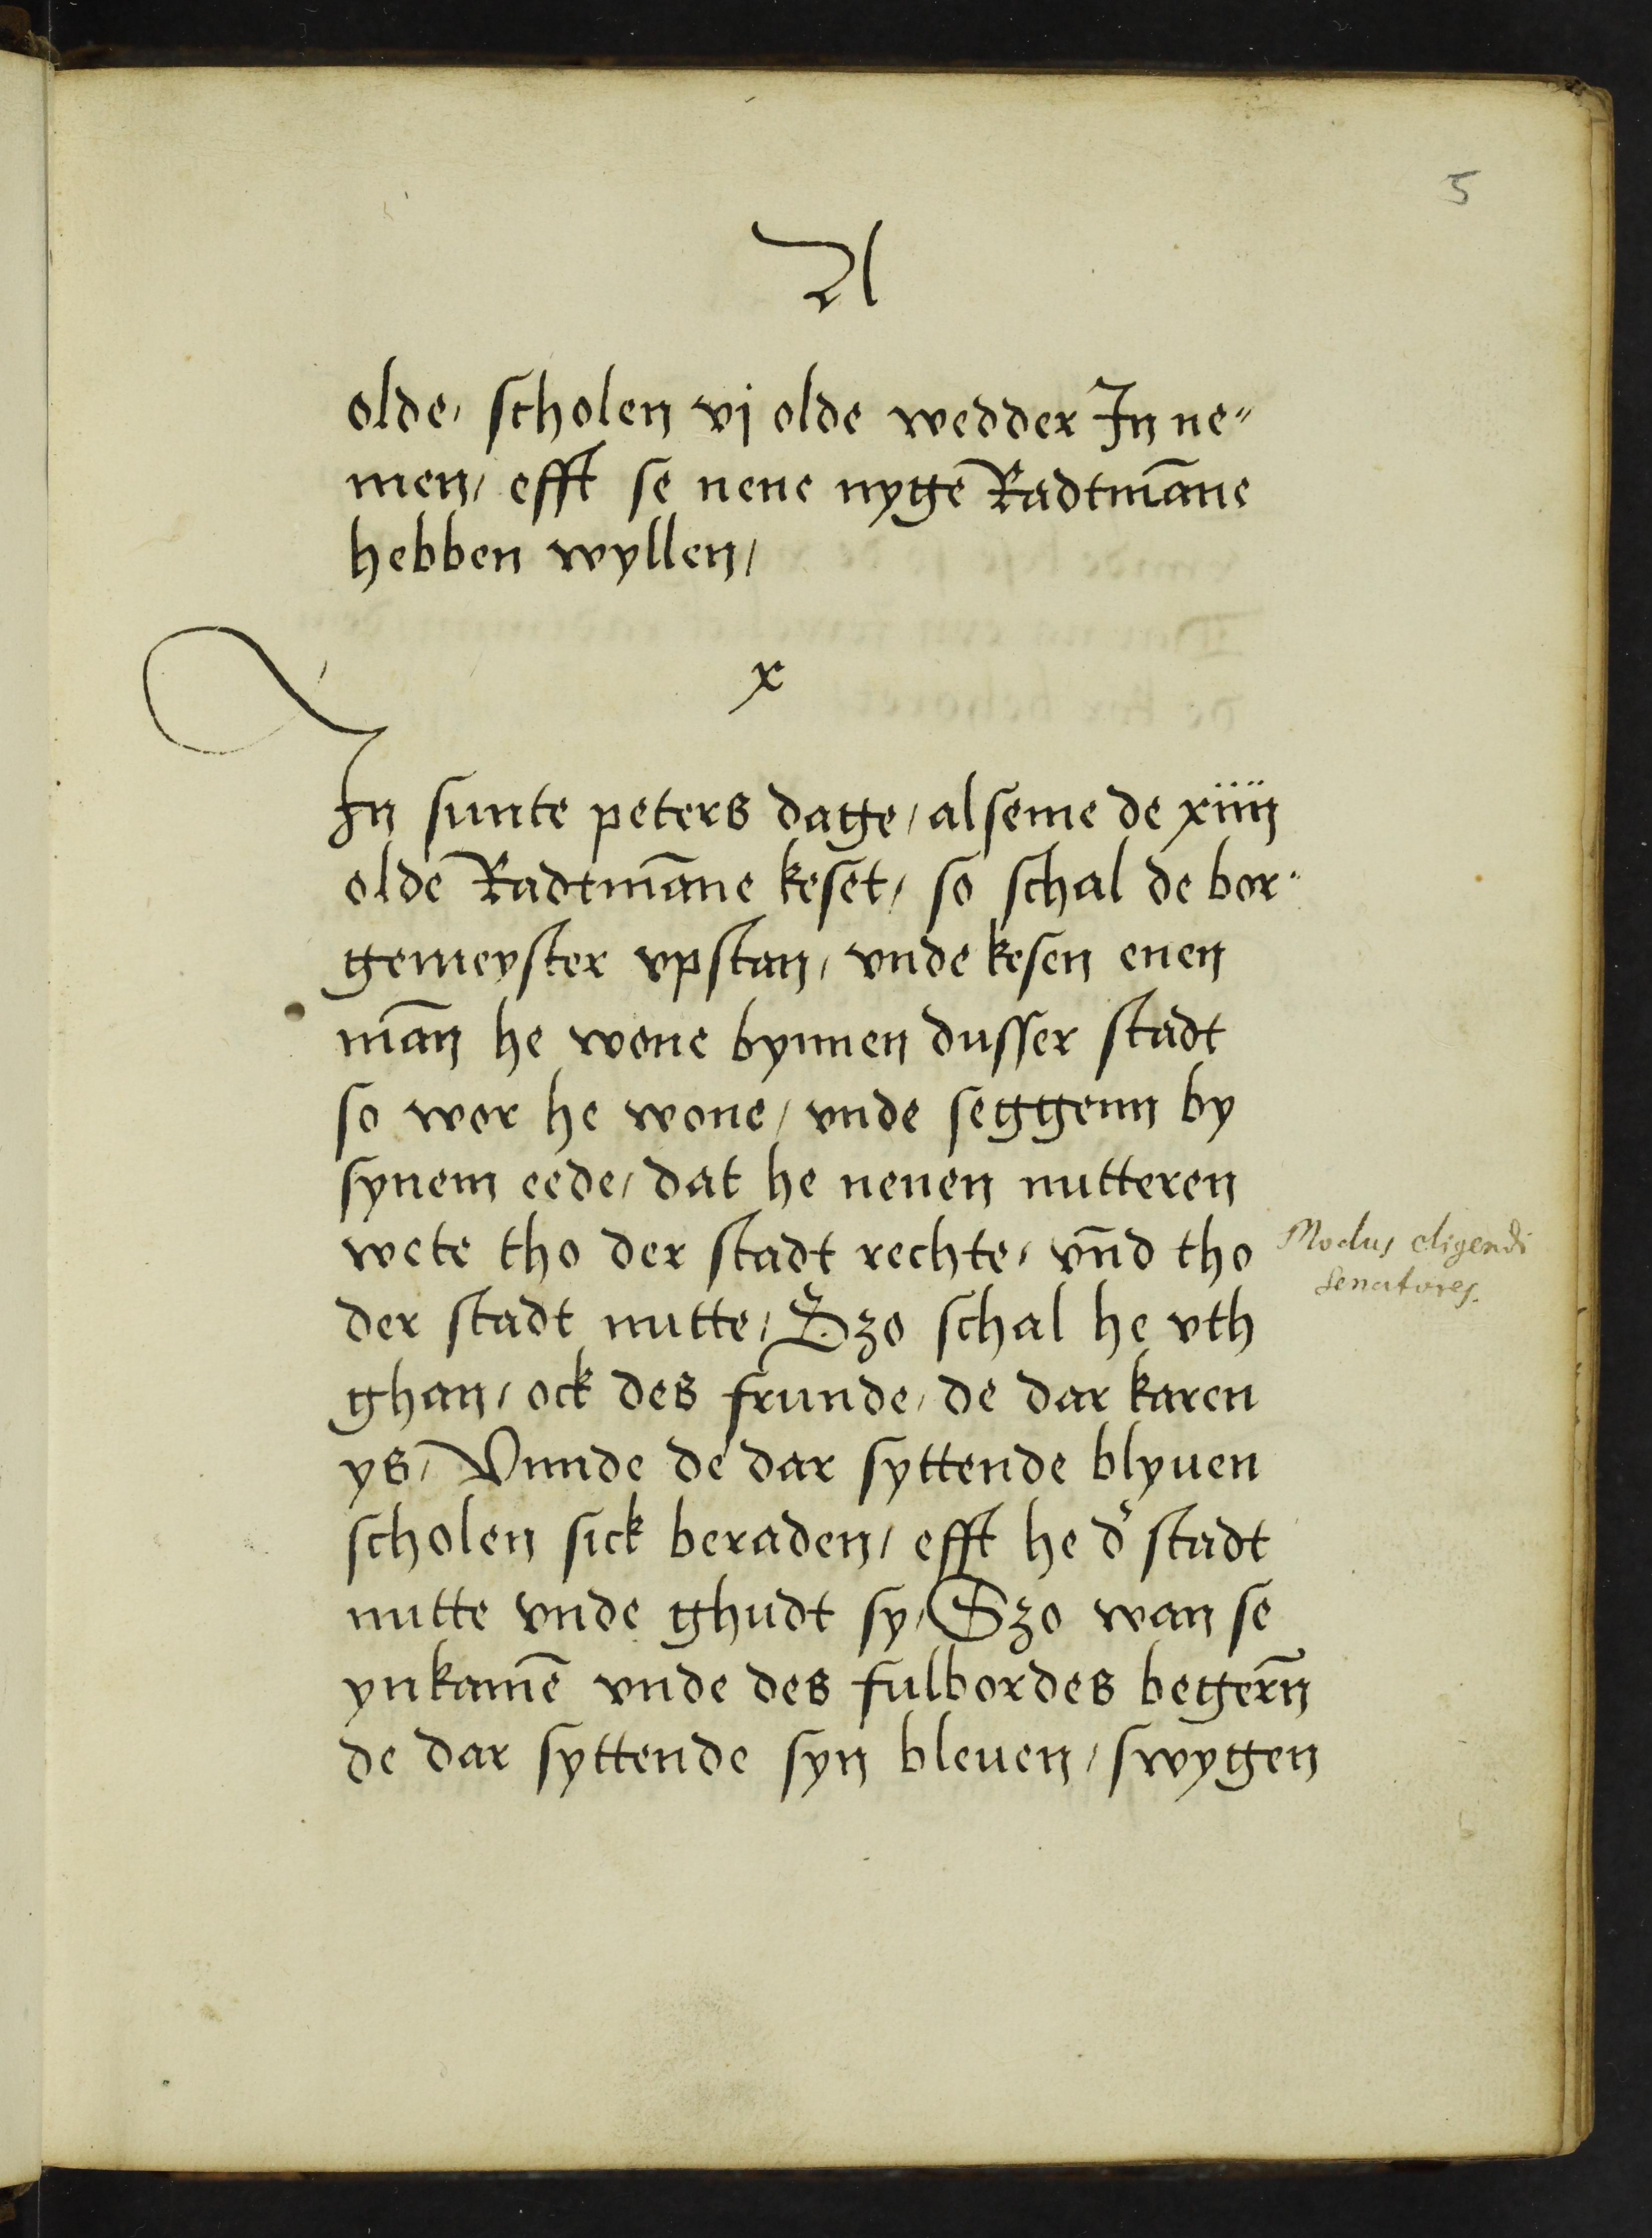 5
A
olde, scholen vj olde wedder In ne"
men, efft se nene nygē Radtmāne
hebben wyllen,
x
In sunte peters dage, alseme de xiiij
oldē Radtmāne keset, so schal de bor"
gemeyster vpstan, vnde kesen enen
mān he wone bynnen dusser stadt
so wor he wone, vnde seggenn by
synem eede, dat he nenen nutteren
wete tho der stadt rechte, vn̄d tho
der stadt nutte, Szo schal he vth
ghan, ock des frunde, de dar karen
ys, Vnnde de dar syttende blyuen
scholen sick beraden, efft he d' stadt
nutte vnde ghudt sy, Szo wan se
ynkamē vnde des fulbordes begern̄
de dar syttende syn bleuen, swygen
Modus eligendi
Senatores.